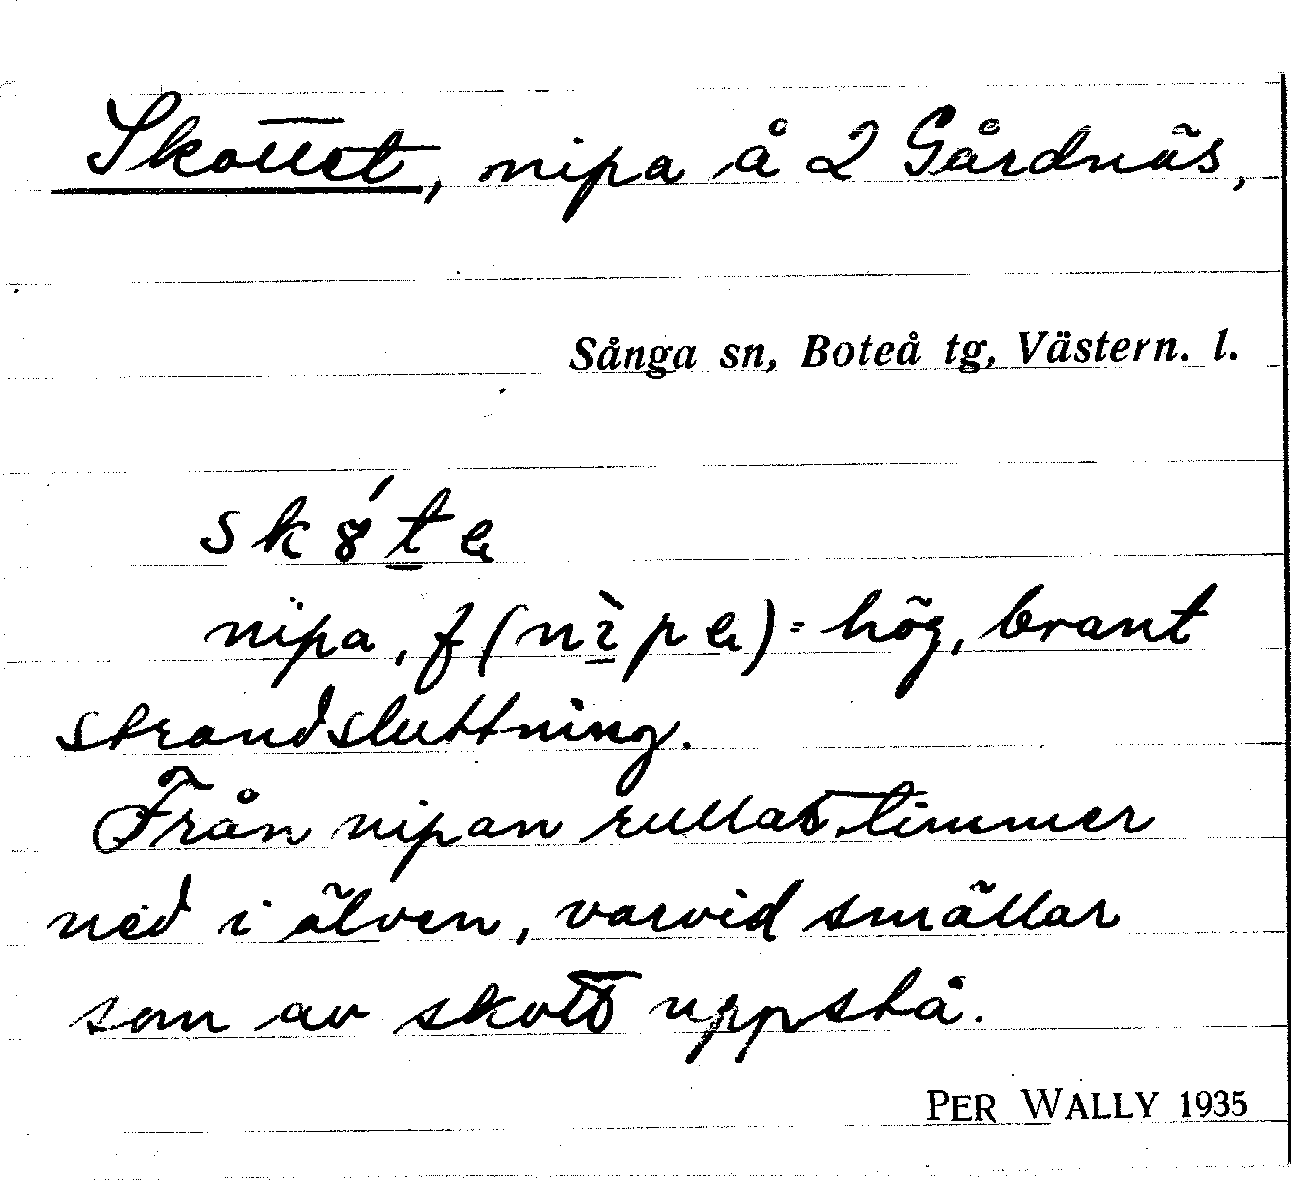 Skottet, nipa å 2 Gårdnäs,
Sånga sn, Boteå tg, Västern. l.
sk8́te
nipa, f (nìpe) = hög, brant
strandsluttning.
Från nipan rullas timmer
ned i älven, varvid smällar
som av skott uppstå.
PER WALLY 1935